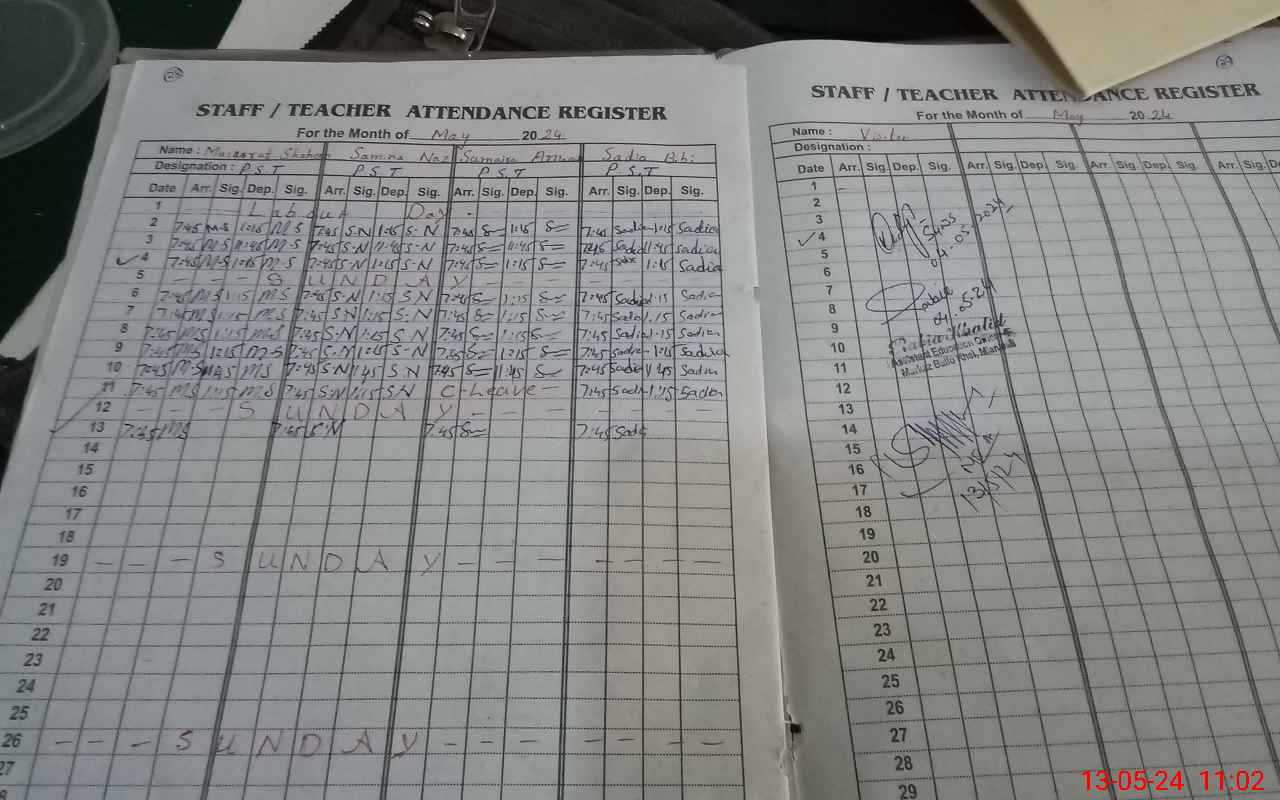 28
STAFF / TEACHER ATTENDANCE REGISTER
For the Month of May 2024
Name : Samina Naz Sumaira Sadia Bibi
Designation : P.S.T P.S.T P.S.T P.S.T
Date Arr. Sig. Dep. Sig. Arr. Sig. Dep. Sig. Arr. Sig. Dep. Sig. Arr. Sig. Dep. Sig.
1 Labour Day
2 7:45 M.S 1:15 M.S 7:45 S.N 1:15 S.N 7:45 1:15 7:45 Sadia 1:15 Sadia
3 7:45 M.S 11:45 M.S 7:45 S.N 11:45 S.N 7:45 11:45 7:45 Sadia 11:45 Sadia
4 7:45 M.S 1:15 M.S 7:45 S.N 1:15 S.N 7:45 1:15 7:45 1:15 Sadia
5 - - - S U N D A Y - - - -
6 7:45 M.S 1:15 M.S 7:45 S.N 1:15 S.N 7:45 1:15 7:45 Sadia 1:15 Sadia
7 7:45 M.S 1:15 M.S 7:45 S.N 1:15 S.N 7:45 1:15 7:45 1:15 Sadia
8 7:45 M.S 1:15 M.S 7:45 S.N 1:15 S.N 7:45 1:15 7:45 Sadia 1:15 Sadia
9 7:45 M.S 1:15 M.S 7:45 S.N 1:15 S.N 7:45 1:15 7:45 Sadia 1:15 Sadia
10 7:45 M.S 11:45 M.S 7:45 S.N 11:45 S.N 7:45 11:45 7:45 Sadia 11:45 Sadia
11 7:45 M.S 1:15 M.S 7:45 S.N 1:15 S.N C-Leave - 7:45 Sadia 1:15 Sadia
12 - - - S U N D A Y - - - -
13 7:45 M.S 7:45 S.N 7:45 7:45 Sadia
14
15
16
17
18
19 - - - S U N D A Y - - - - - - - -
20
21
22
23
24
25
26 - - - S U N D A Y - - - - - - - -
27
29
STAFF / TEACHER ATTENDANCE REGISTER
For the Month of May 2024
Name : Visitor
Designation :
Date Arr. Sig. Dep. Sig. Arr. Sig. Dep. Sig. Arr. Sig. Dep. Sig. Arr. Sig.
1
2
3
4
5
6
7
8
9
10
11
12
13
14
15
16
17
18
19
20
21
22
23
24
25
26
27
28
29
04-05-2024
04.05.24
Rabia Khalid
Assistant Education Officer
13/5/24
13-05-24 11:02